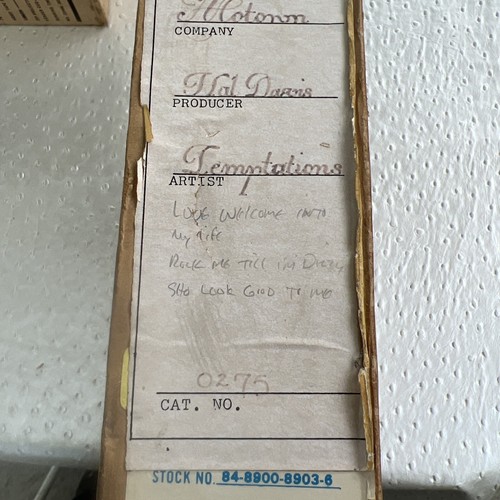 Motown
COMPANY
Hal Davis
PRODUCER
Temptations
ARTIST
LOVE WELCOME INTO
My Life
Rock ME Till I'm Dizzy
SHE LOOK GOOD TO ME
0275
CAT. NO.
STOCK NO. 84-8900-8903-6